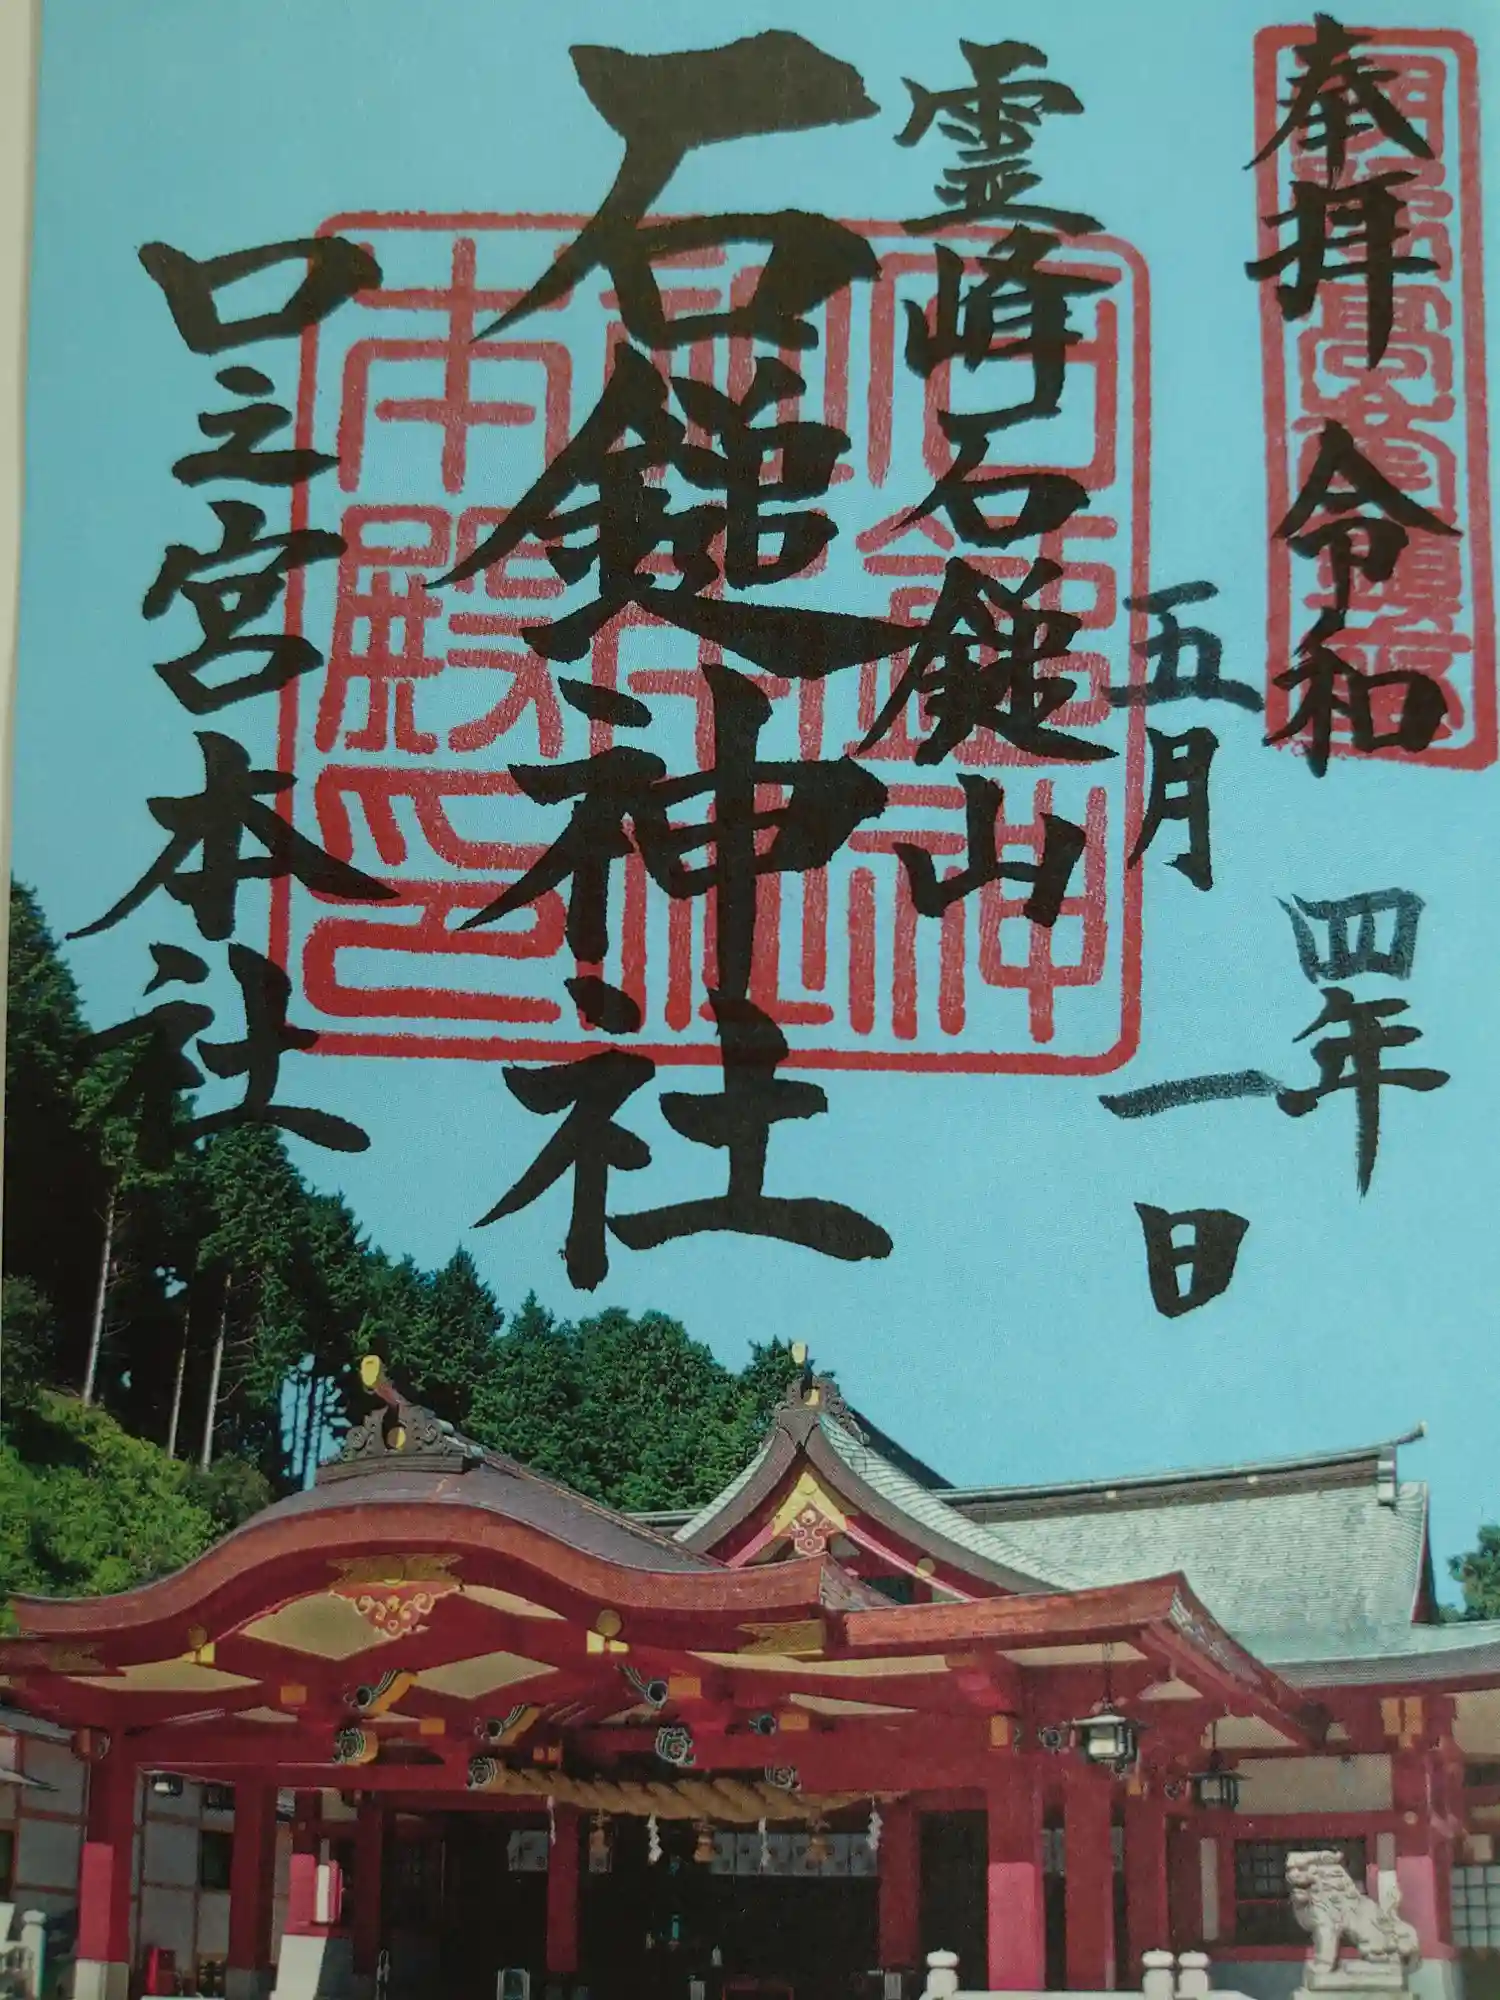 奉拝 令和四年
五月一日
霊峰石鎚山
石鎚神社
口之宮本社
石鎚神社本殿印